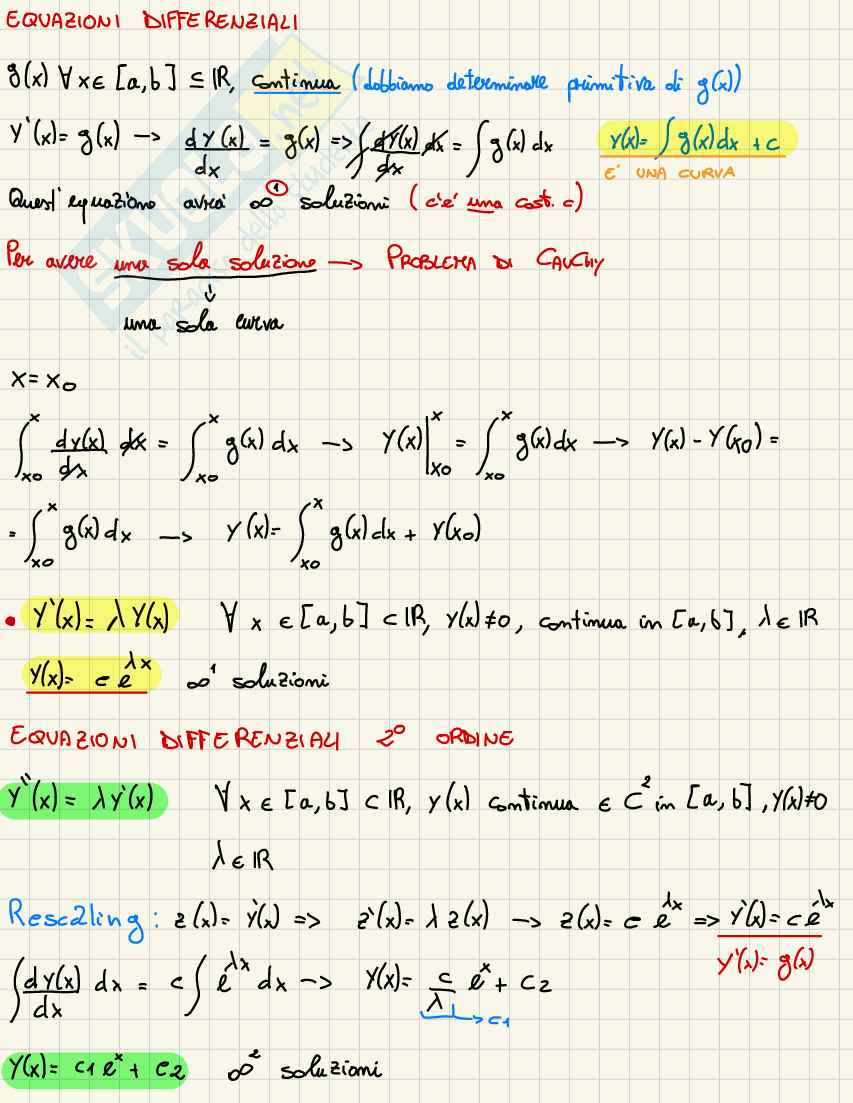 EQUAZIONI DIFFERENZIALI
g(x) ∀ x ∈ [a,b] ⊆ ℝ, continua (dobbiamo determinare primitiva di g(x))
y'(x) = g(x) → dy(x)/dx = g(x) => ∫ dy(x)/dx dx = ∫ g(x) dx y(x) = ∫ g(x) dx + c
E' UNA CURVA
Quest'equazione avrà ∞¹ soluzioni (c'è una cost. c)
Per avere una sola soluzione → PROBLEMA DI CAUCHY
↓
una sola curva
x = x0
∫_x0^x dy(x)/dx dx = ∫_x0^x g(x) dx → y(x)|_x0^x = ∫_x0^x g(x) dx → y(x) - y(x0) =
= ∫_x0^x g(x) dx → y(x) = ∫_x0^x g(x) dx + y(x0)
• y'(x) = λ y(x) ∀ x ∈ [a,b] ⊂ ℝ, y(x) ≠ 0, continua in [a,b], λ ∈ ℝ
y(x) = c e^λx ∞¹ soluzioni
EQUAZIONI DIFFERENZIALI 2° ORDINE
y''(x) = λ y'(x) ∀ x ∈ [a,b] ⊂ ℝ, y(x) continua ∈ C² in [a,b], y(x) ≠ 0
λ ∈ ℝ
Rescaling: z(x) = y'(x) => z'(x) = λ z(x) → z(x) = c e^λx => y'(x) = c e^λx
y'(x) = g(x)
∫ dy(x)/dx dx = c ∫ e^λx dx → y(x) = c/λ e^x + c2
→ c1
y(x) = c1 e^x + c2 ∞² soluzioni
SKUOLA.net
il paradiso dello studente